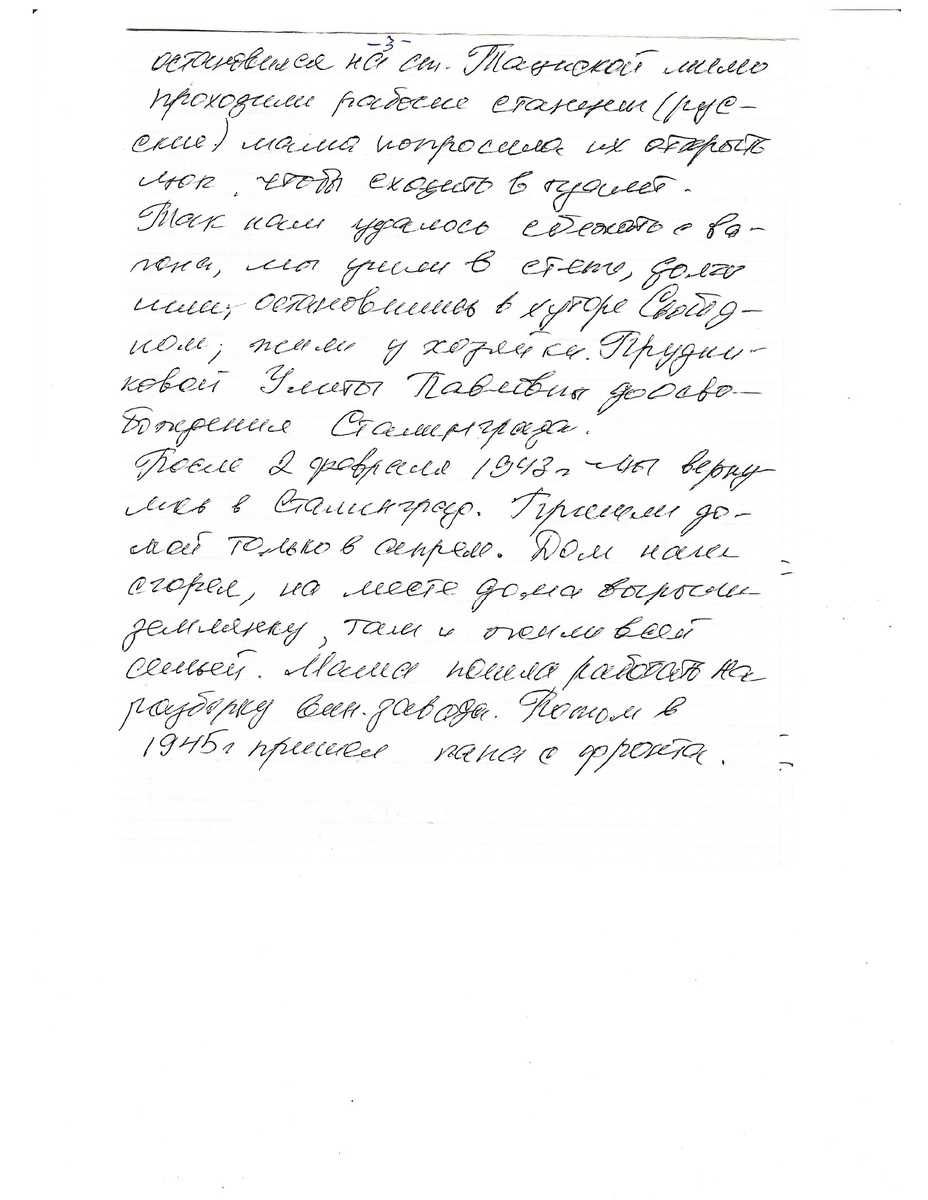 -3-
остановился на ст. Тациской мимо
проходили рабочие станции (рус-
ские) мама попросила их открыть
люк, чтобы сходить в туалет.
Так нам удалось сбежать с ва-
гона, мы ушли в степь, долго
шли, остановились в хуторе Свобод-
ном, жили у хозяйки Прудни-
ковой Улиты Павловны до осво-
бождения Сталинграда.
После 2 февраля 1943 г мы верну-
лись в Сталинград. Пришли до-
мой только в апреле. Дом наш
сгорел, на месте дома вырыли
землянку, там и жили всей
семьей. Мама пошла работать на
разборку вин. завода. Потом в
1945 г пришел папа с фронта.